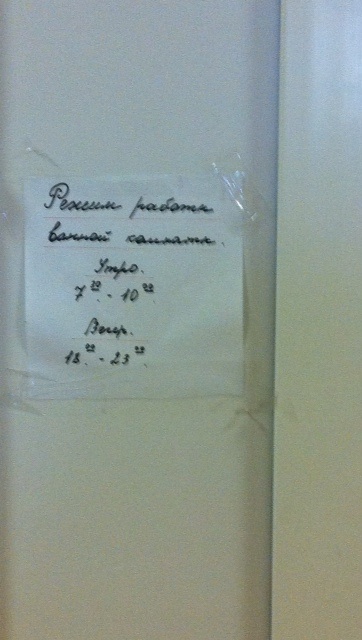 Режим работы
ванной комнаты.
Утро.
7⁰⁰ - 10⁰⁰
Вечер.
18⁰⁰ - 23⁰⁰